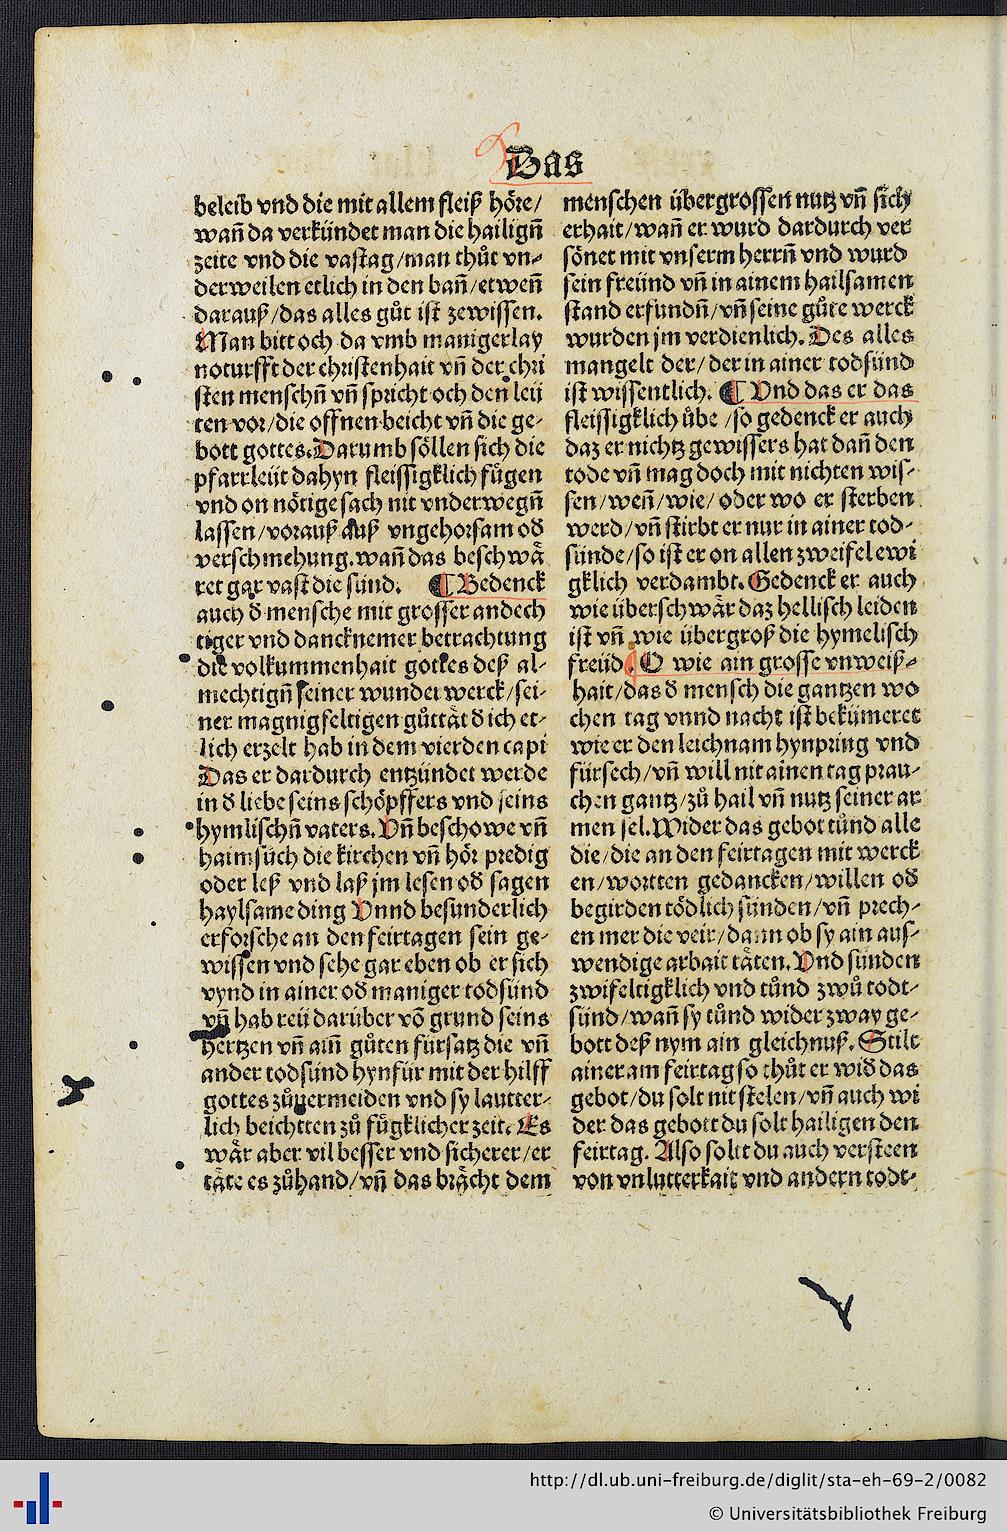 Das
beleib vnd die mit allem fleiß höre/
wañ da verkündet man die hailigñ
zeite vnd die vastag/man thůt vn-
derweilen etlich in den bañ/etweñ
darauß/das alles gůt ist zewissen.
Man bitt och da vmb manigerlay
noturfft der christenhait vñ der chri
sten menschñ vñ spricht och den leü
ten vor/die offnen beicht vñ die ge-
bott gottes. Darumb söllen sich die
pfarrleüt dahyn fleissigklich fůgen
vnd on nötige sach nit vnderwegñ
lassen/vorauß auß vngehorsam oď
verschmehung. wañ das beschwä
ret gar vast die sünd. ¶ Bedenck
auch ď mensche mit grosser andech
tiger vnd dancknemer betrachtung
die volkummenhait gottes deß al-
mechtigñ seiner wunder werck/sei-
ner magnigfeltigen gůttät ď ich et-
lich erzelt hab in dem vierden capi
Das er dardurch entzündet werde
in ď liebe seins schöpffers vnd seins
hymlischñ vaters. Vñ beschowe vñ
haimsůch die kirchen vñ hör predig
oder leß vnd laß jm lesen oď sagen
haylsame ding Vnnd besunderlich
erforsche an den feirtagen sein ge-
wissen vnd sehe gar eben ob er sich
vynd in ainer oď maniger todsünd
vñ hab reü darüber võ grund seins
hertzen vñ ain gůten fürsatz die vñ
ander todsünd hynfür mit der hilff
gottes zůuermeiden vnd sy lautter-
lich beichtten zů fůgklicher zeit. Es
wär aber vil besser vnd sicherer/er
täte es zůhand/vñ das brächt dem
menschen übergrossen nutz vñ sich
erhait/wañ er wurd dardurch ver
sönet mit vnserm herrñ vnd wurd
sein freünd vñ in ainem hailsamen
stand erfundñ/vñ seine gůte werck
wurden jm verdienlich. Des alles
mangelt der/der in ainer todsünd
ist wissentlich. ¶ Vnd das er das
fleissigklich übe/so gedenck er auch
daz er nichtz gewissers hat dañ den
tode vñ mag doch mit nichten wis-
sen/weñ/wie/oder wo er sterben
werd/vñ stirbt er nur in ainer tod-
sünde/so ist er on allen zweifel ewi
gklich verdambt. Gedenck er auch
wie überschwär daz hellisch leiden
ist vñ wie übergroß die hymelisch
freüd. O wie ain grosse vnweiß-
hait/das ď mensch die gantzen wo
chen tag vnnd nacht ist bekümeret
wie er den leichnam hynpring vnd
fürsech/vñ will nit ainen tag prau-
chen gantz/zů hail vñ nutz seiner ar
men sel. Wider das gebot tůnd alle
die/die an den feirtagen mit werck
en/wortten gedancken/willen oď
begirden tödlich sünden/vñ prech-
en mer die veir/dann ob sy ain aus-
wendige arbait täten. Vnd sünden
zwifeltigklich vnd tůnd zwů todt-
sünd/wañ sy tůnd wider zway ge-
bott deß nym ain gleichnuß. Stilt
ainer am feirtag so thůt er wiď das
gebot/du solt nit stelen/vñ auch wi
der das gebott du solt hailigen den
feirtag. Also solt du auch versteen
von vnlutterkait vnd andern todt-
http://dl.ub.uni-freiburg.de/diglit/sta-eh-69-2/0082
© Universitätsbibliothek Freiburg